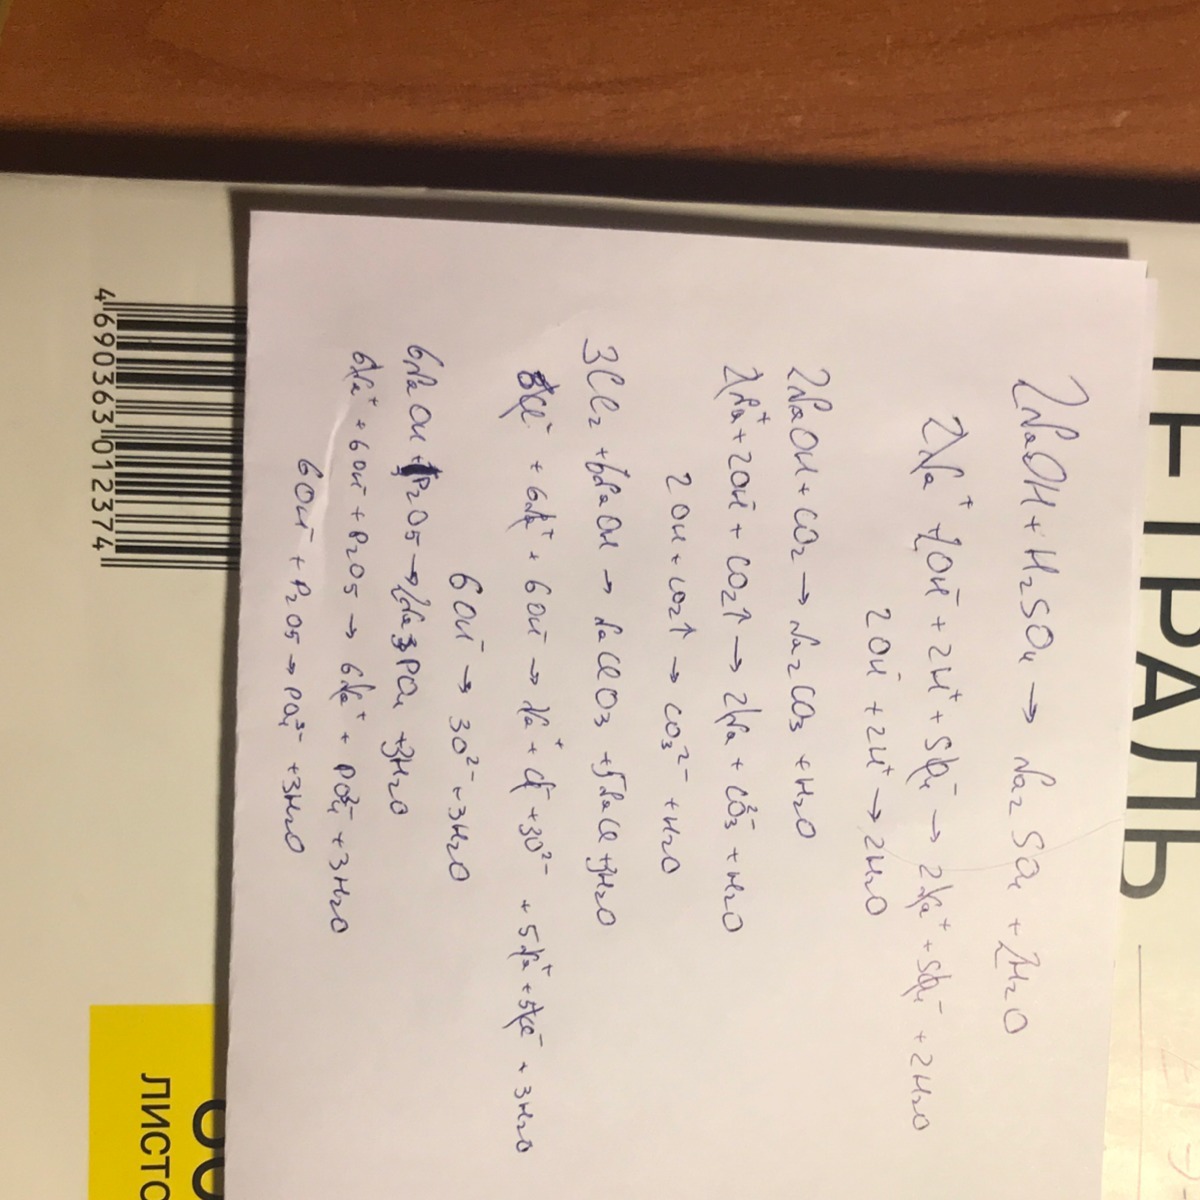 2NaOH + H2SO4 → Na2SO4 + 2H2O
2Na⁺ + 2OH⁻ + 2H⁺ + SO4⁻ → 2Na⁺ + SO4⁻ + 2H2O
2OH⁻ + 2H⁺ → 2H2O
2NaOH + CO2 → Na2CO3 + H2O
2Na⁺ + 2OH⁻ + CO2↑ → 2Na + CO3²⁻ + H2O
2OH + CO2↑ → CO3²⁻ + H2O
3Cl2 + 6NaOH → NaClO3 + 5NaCl + 3H2O
6Cl⁻ + 6Na⁺ + 6OH⁻ → Na⁺ + Cl⁻ + 3O²⁻ + 5Na⁺ + 5Cl⁻ + 3H2O
6OH⁻ → 3O²⁻ + 3H2O
6NaOH + P2O5 → 2Na3PO4 + 3H2O
6Na⁺ + 6OH⁻ + P2O5 → 6Na⁺ + PO4³⁻ + 3H2O
6OH⁻ + P2O5 → PO4³⁻ + 3H2O
4 690363 012374
ТЕТРАДЬ
ЛИСТО